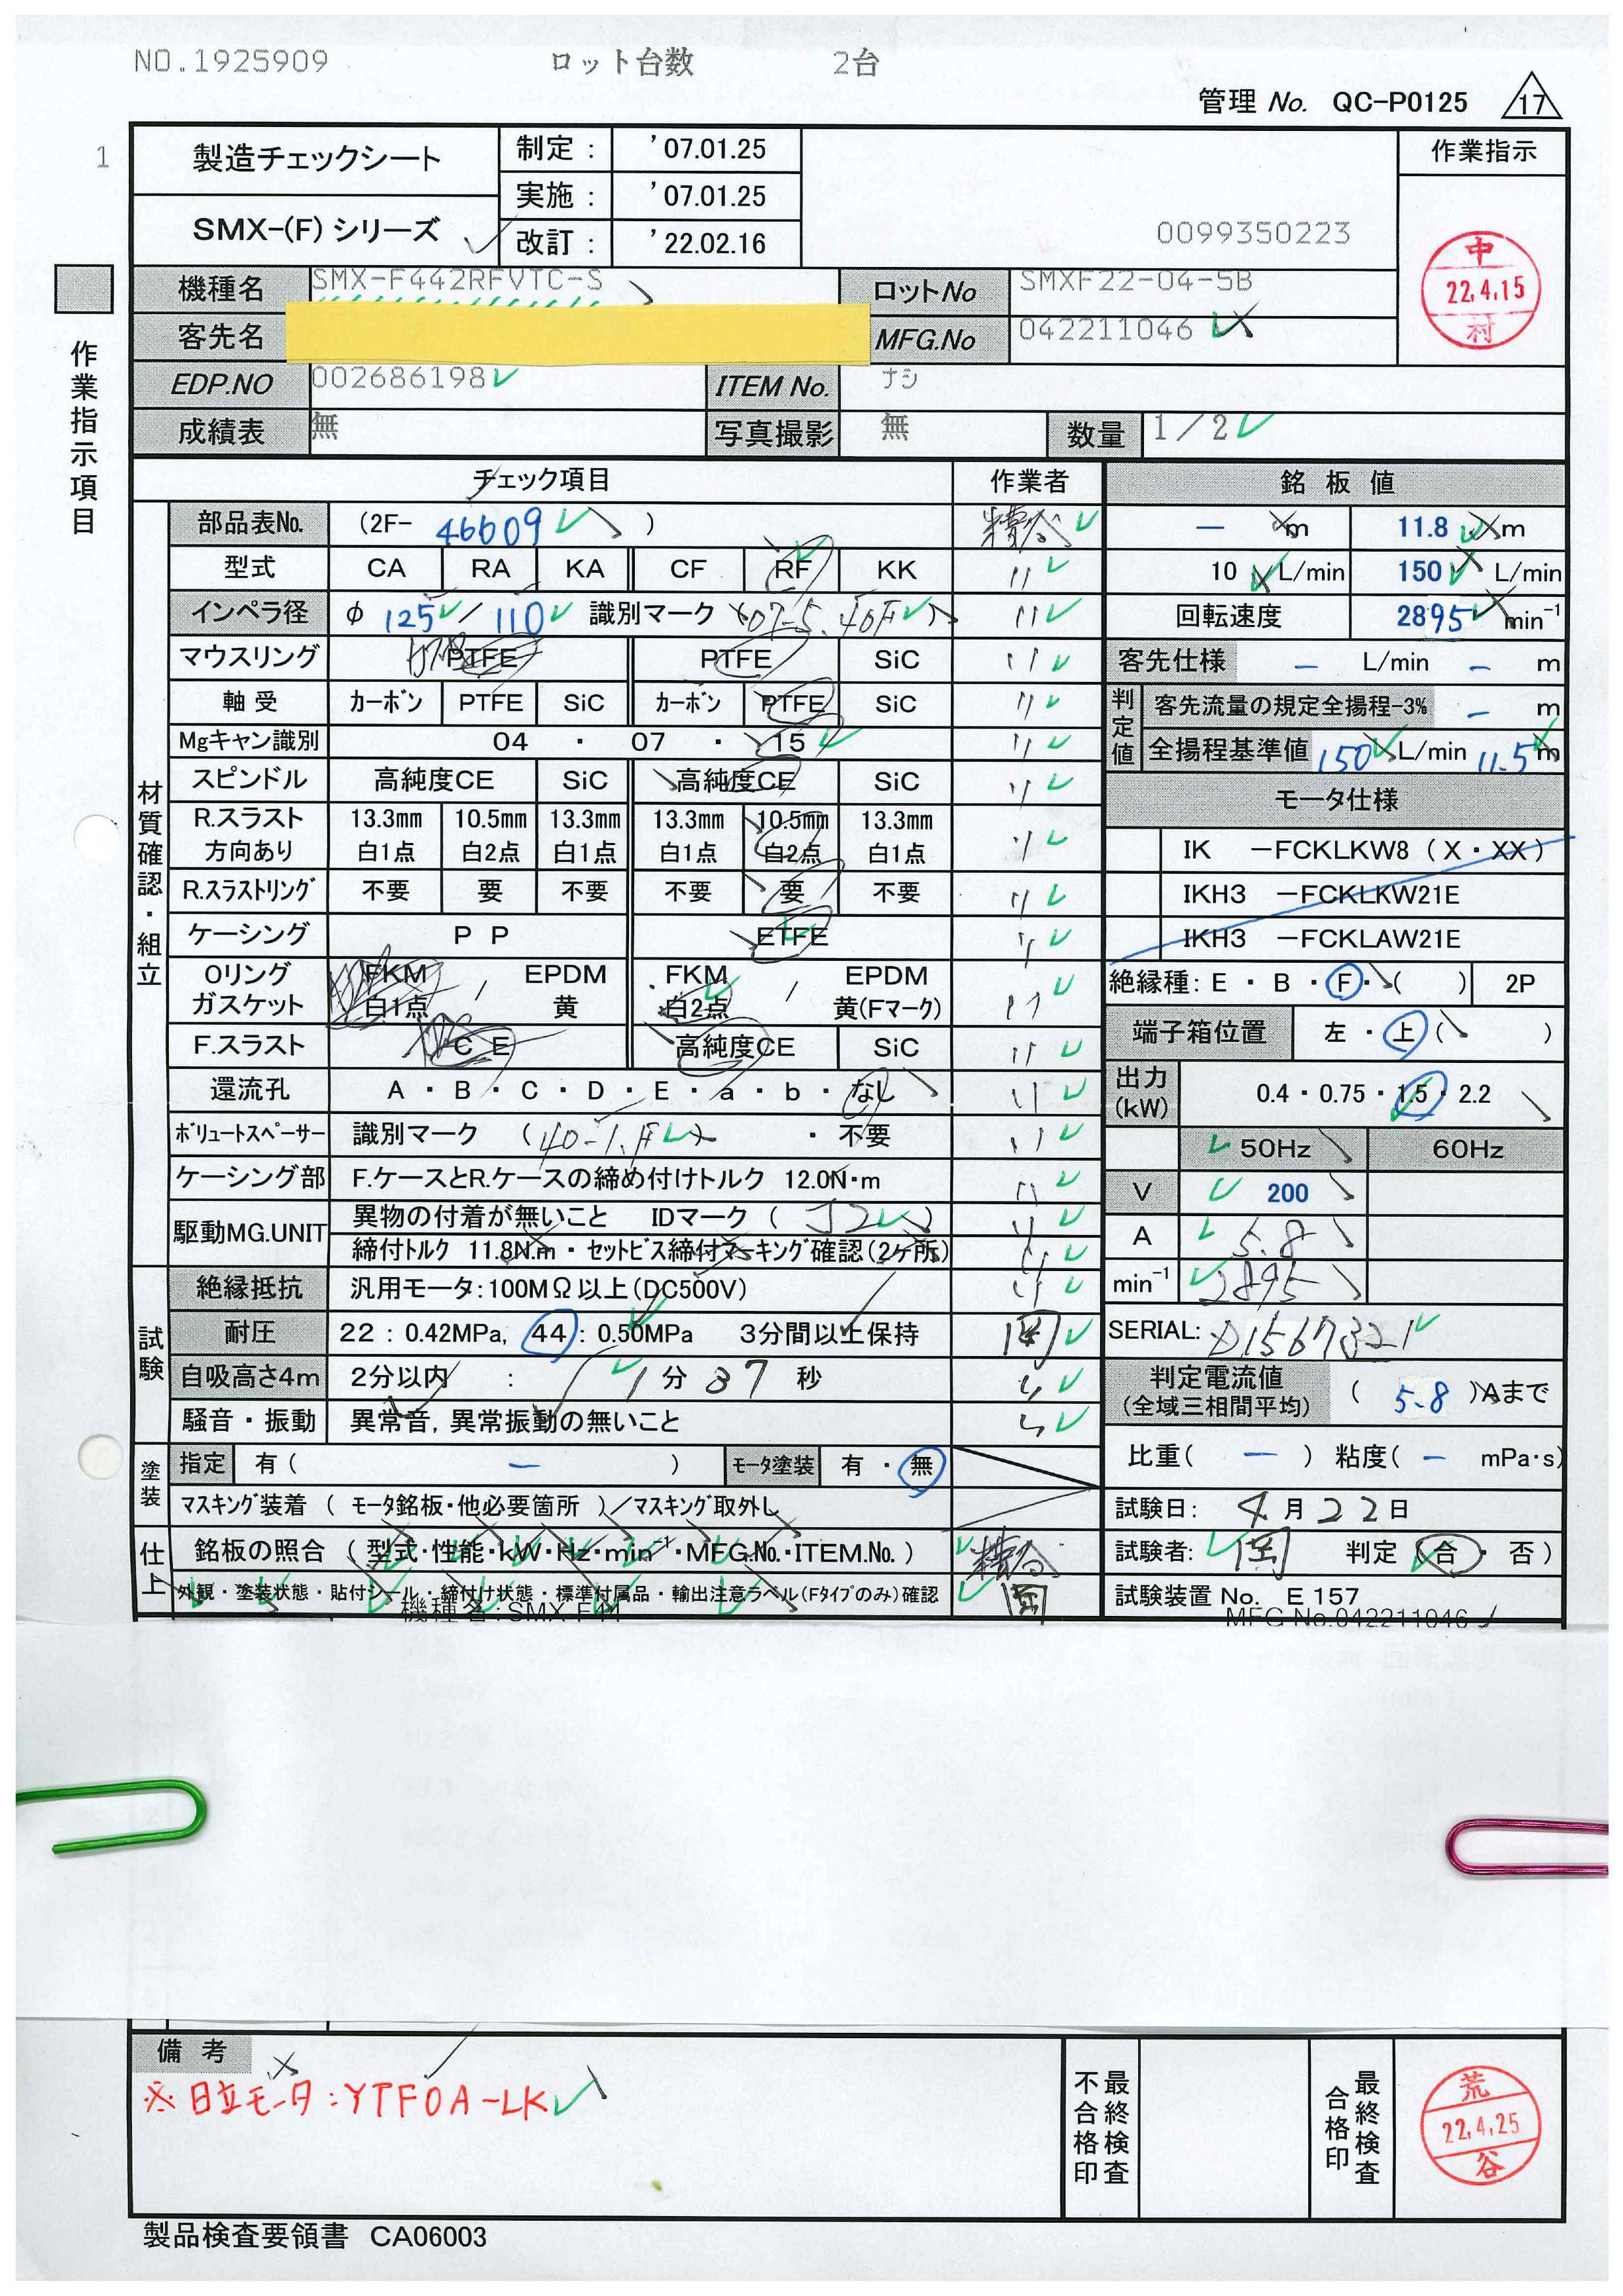 NO.1925909 ロット台数 2台
管理 No. QC-P0125 17
1
製造チェックシート
SMX-(F) シリーズ
制定： '07.01.25
実施： '07.01.25
改訂： '22.02.16
0099350223
作業指示
中
22.4.15
村
作業指示項目
機種名 SMX-F442RFVTC-S ロットNo SMXF22-04-5B
客先名 MFG.No 042211046
EDP.NO 002686198 ITEM No. ナシ
成績表 無 写真撮影 無 数量 1／2
チェック項目 作業者
材質確認・組立
部品表No. (2F- 46609 )
型式 CA RA KA CF RF KK
インペラ径 φ 125 / 110 識別マーク (07-5.40F)
マウスリング PTFE PTFE SiC
軸受 カーボン PTFE SiC カーボン PTFE SiC
Mgキャン識別 04 ・ 07 ・ 15
スピンドル 高純度CE SiC 高純度CE
R.スラスト 13.3mm 10.5mm 13.3mm 13.3mm 10.5mm 13.3mm
方向あり 白1点 白2点 白1点 白1点 白2点 白1点
R.スラストリング 不要 要 不要 不要 要 不要
ケーシング PP ETFE
Oリング FKM / EPDM FKM / EPDM
ガスケット 白1点 黄 白2点 黄(Fマーク)
F.スラスト CE 高純度CE SiC
還流孔 A・B・C・D・E・a・b・なし
ボリュートスペーサー 識別マーク (40-1.F) ・不要
ケーシング部 F.ケースとR.ケースの締め付けトルク 12.0N・m
駆動MG.UNIT 異物の付着が無いこと IDマーク ( J2 )
締付トルク 11.8N.m・セットビス締付マーキング確認(2ケ所)
試験
絶縁抵抗 汎用モータ:100MΩ以上(DC500V)
耐圧 22：0.42MPa, 44：0.50MPa 3分間以上保持
自吸高さ4m 2分以内 ： 1分 37秒
騒音・振動 異常音, 異常振動の無いこと
塗装
指定 有 ( － ) モータ塗装 有・無
マスキング装着 ( モータ銘板・他必要箇所 )／マスキング取外し
仕上
銘板の照合 (型式・性能・kW・Hz・min⁻¹・MFG.No.・ITEM.No.)
外観・塗装状態・貼付シール・締付け状態・標準付属品・輸出注意ラベル(Fタイプのみ)確認
銘板値
－ m 11.8 m
10 L/min 150 L/min
回転速度 2895 min⁻¹
客先仕様 － L/min － m
判定値
客先流量の規定全揚程-3% － m
全揚程基準値 150 L/min 11.5 m
モータ仕様
IK －FCKLKW8 (X・XX)
IKH3 －FCKLKW21E
IKH3 －FCKLAW21E
絶縁種: E・B・F・( ) 2P
端子箱位置 左・上 ( )
出力(kW) 0.4・0.75・1.5・2.2
50Hz 60Hz
V 200
A 5.8
min⁻¹ 2895
SERIAL: D1567321
判定電流値
(全域三相間平均) ( 5.8 )Aまで
比重( － ) 粘度( － mPa・s)
試験日: 4月22日
試験者: 岡 判定 (合・否)
試験装置 No. E 157
機種名:SMX-F44 MFG No.042211046
備考
※日立モータ:YTFOA-LK
最終検査不合格印
最終検査合格印
荒
22.4.25
谷
製品検査要領書 CA06003